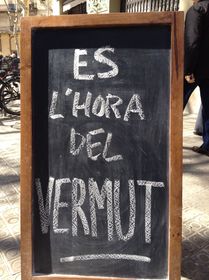 ES
L'HORA
DEL
VERMUT